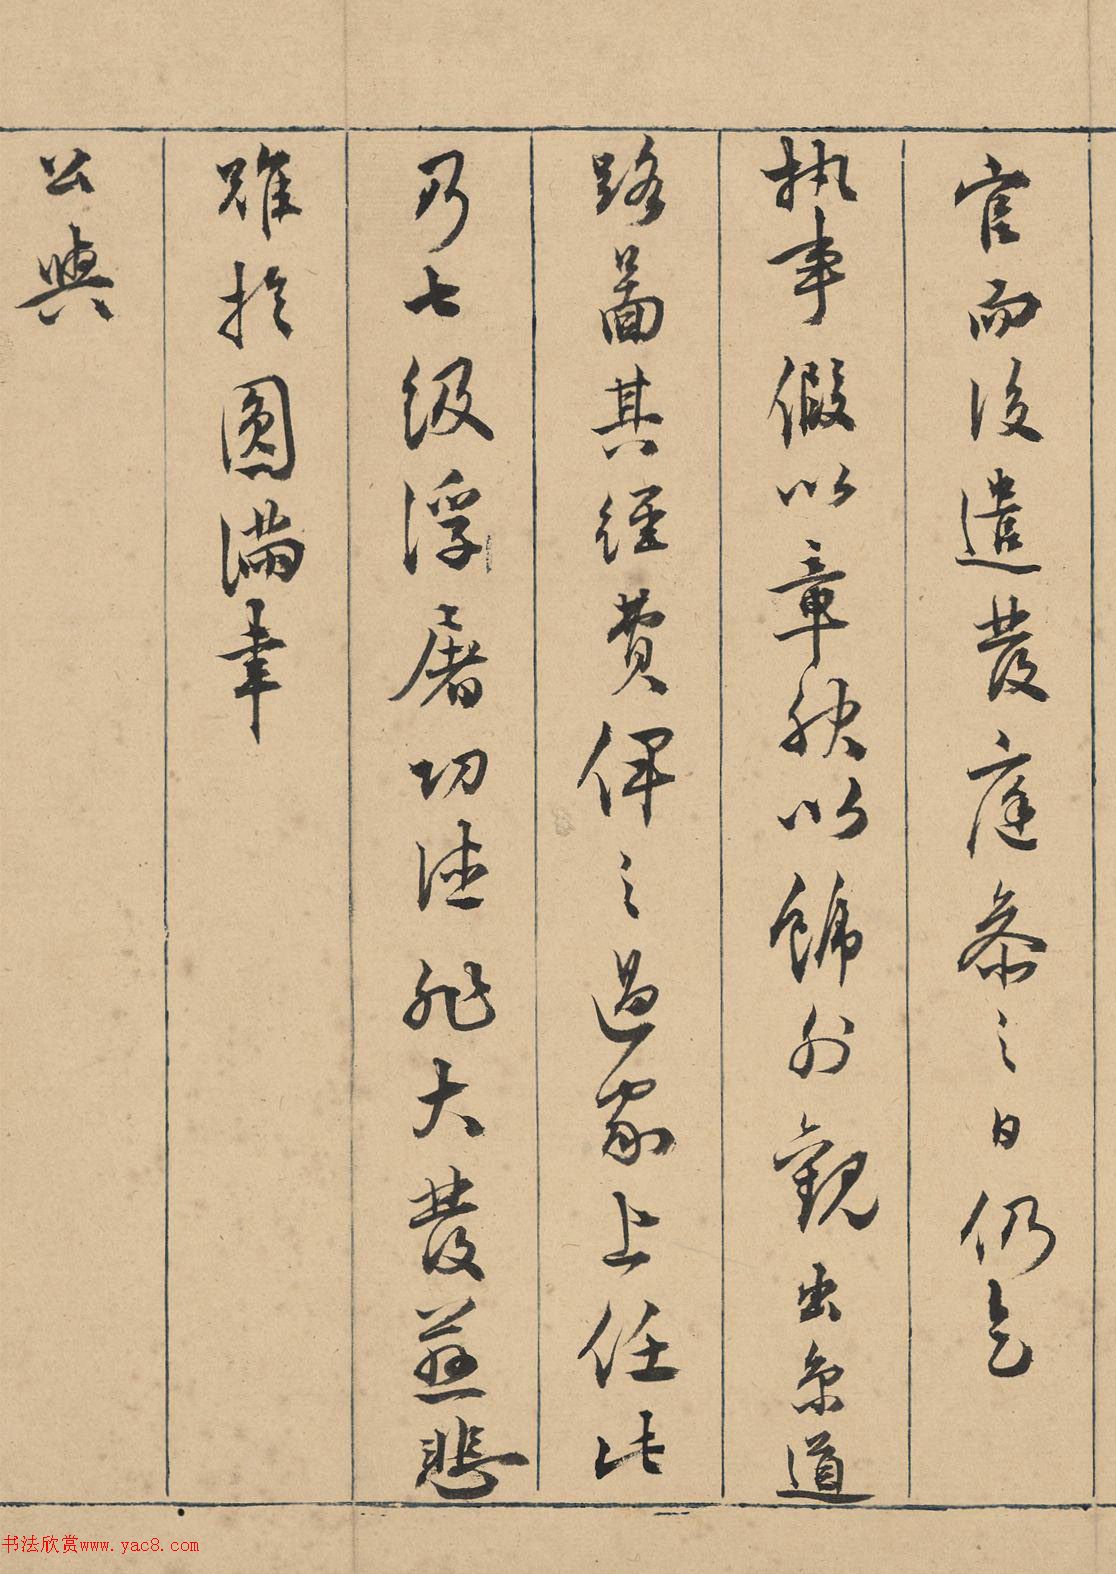 官而後遣發庭參之日仍乞
執事假以章秩以飾外觀出京道
路啚其經費俾之過家上任此
乃七級浮屠功德非大發慈悲
難於圓滿幸
公與
书法欣赏www.yac8.com